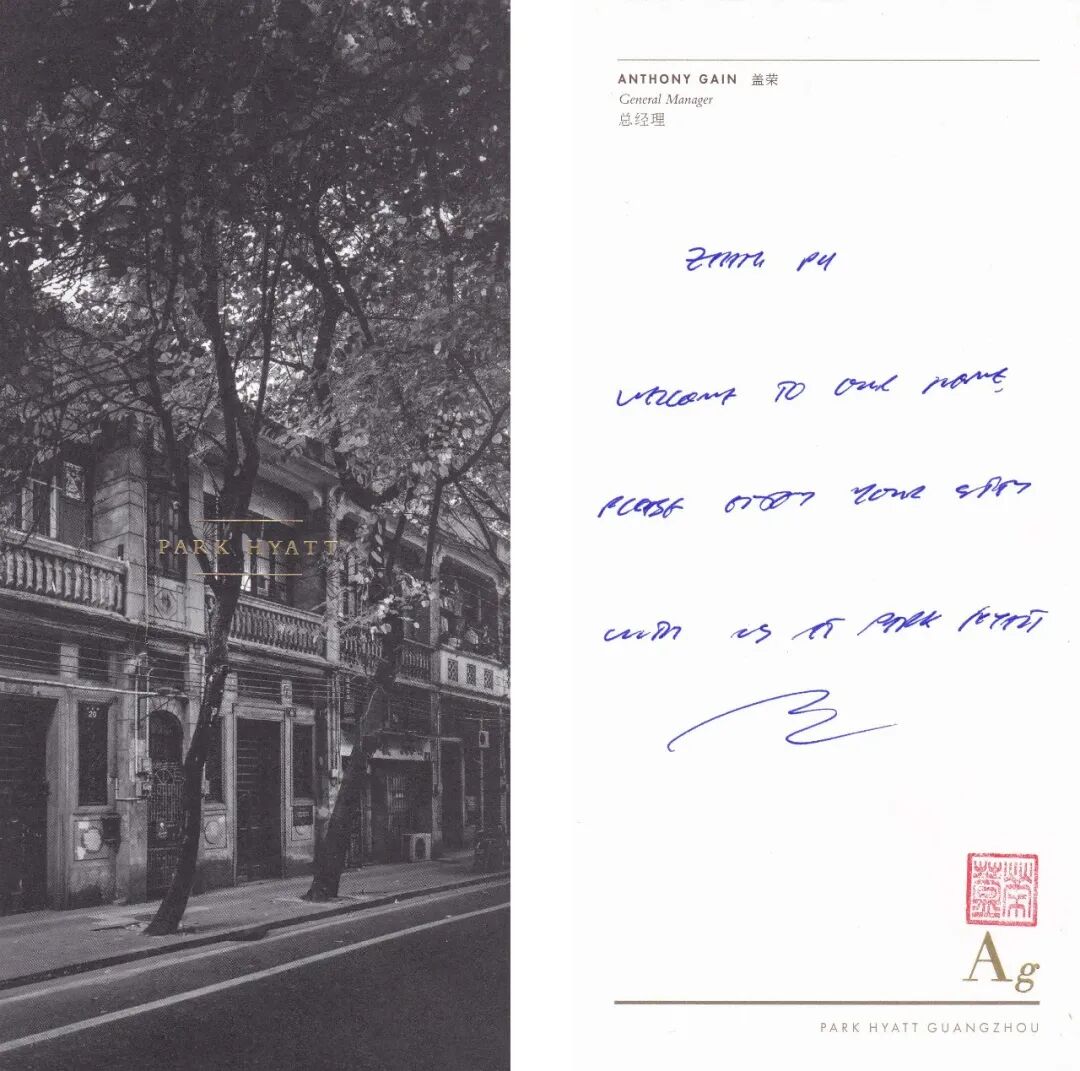 PARK HYATT
20
ANTHONY GAIN 盖荣
General Manager
总经理
WELCOME TO OUR HOME
PLEASE ENJOY YOUR STAY
WITH US AT PARK HYATT
Ag
PARK HYATT GUANGZHOU